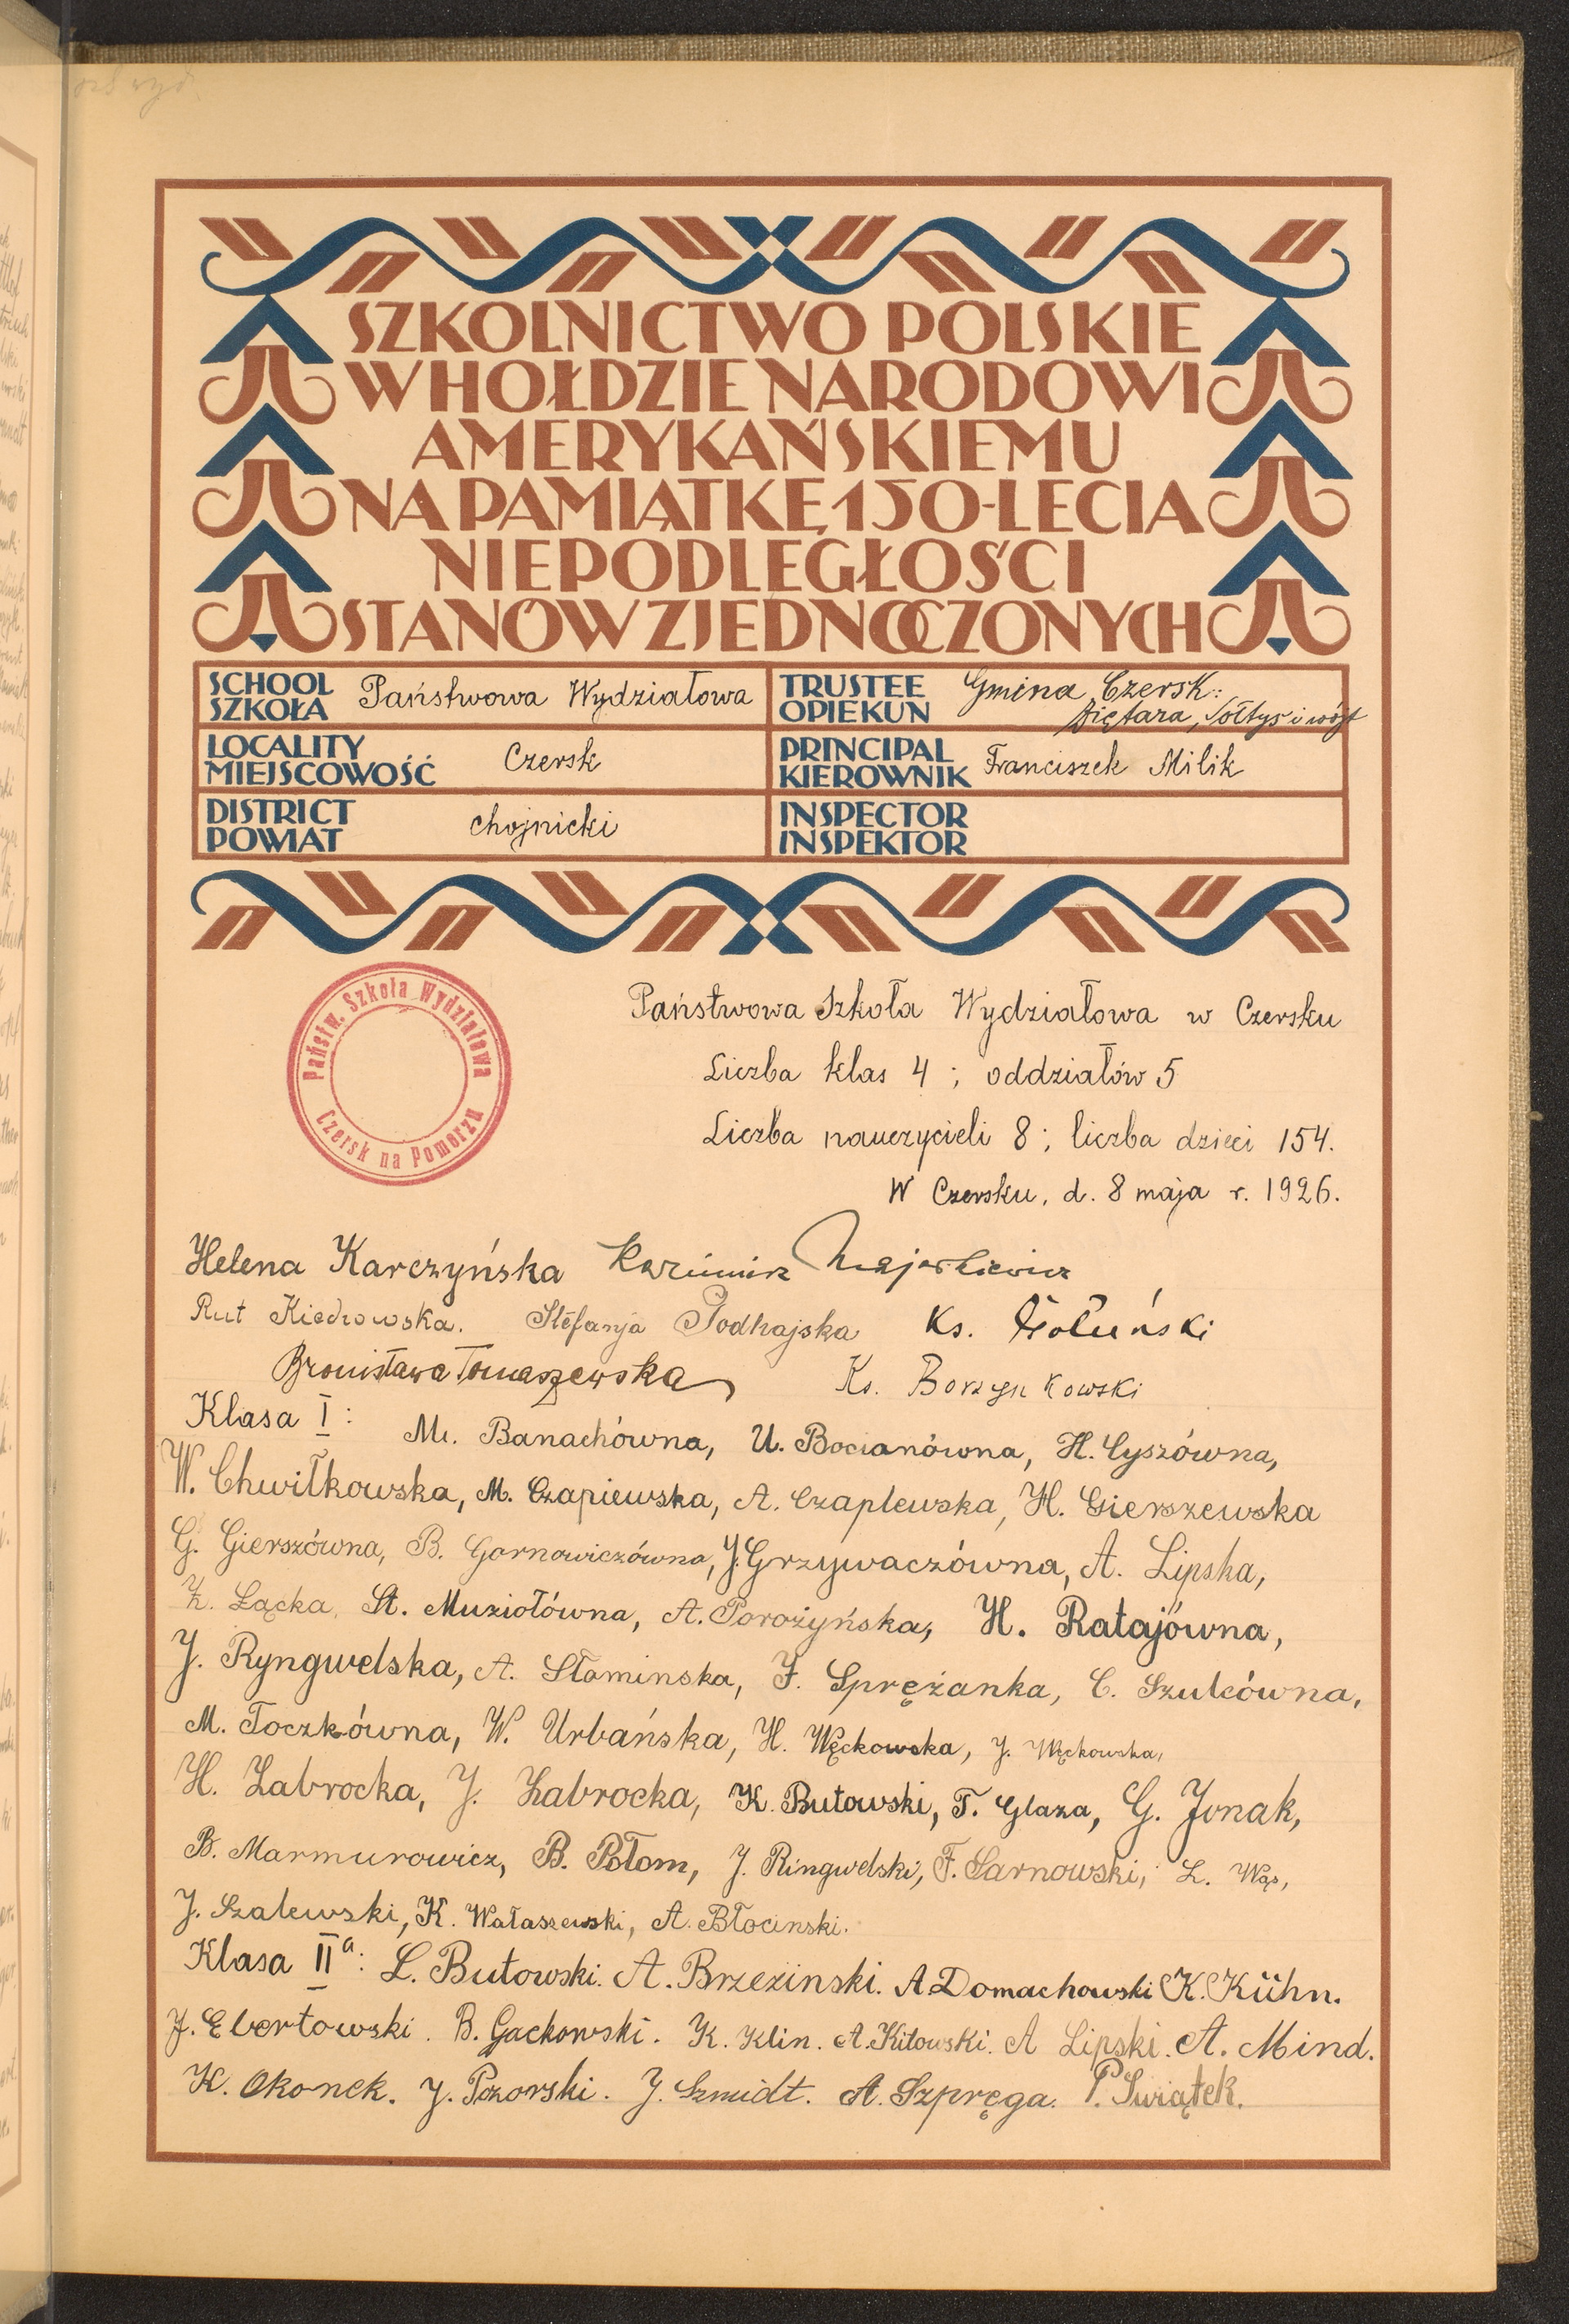 SZKOLNICTWO POLSKIE
W HOŁDZIE NARODOWI
AMERYKAŃSKIEMU
NA PAMIĄTKĘ 150-LECIA
NIEPODLEGŁOŚCI
STANÓW ZJEDNOCZONYCH
SCHOOL
SZKOŁA
Państwowa Wydziałowa
TRUSTEE
OPIEKUN
Gmina Czersk:
sołtys i wójt
LOCALITY
MIEJSCOWOŚĆ
Czersk
PRINCIPAL
KIEROWNIK
Franciszek Milik
DISTRICT
POWIAT
chojnicki
INSPECTOR
INSPEKTOR
Państw. Szkoła Wydziałowa
Czersk na Pomorzu
Państwowa Szkoła Wydziałowa w Czersku
Liczba klas 4 ; oddziałów 5
Liczba nauczycieli 8 ; liczba dzieci 154.
W Czersku, d. 8 maja r. 1926.
Helena Karczyńska Kazimierz Majewicz
Rut Kiedrowska. Stefanja Podhajska Ks. Gołuński
Bronisława Tomaszewska Ks. Borzyszkowski
Klasa I : M. Banachówna, U. Bocianówna, H. Cyszówna,
W. Chwiłkowska, M. Czapiewska, A. Czaplewska, H. Gierszewska
G. Gierszówna, B. Garnowiczówna, J. Grzywaczówna, A. Lipska,
Z. Łącka, St. Muziołówna, A. Porożyńska, H. Ratajówna,
J. Ryngwelska, A. Słominska, F. Sprężanka, C. Szulcówna,
M. Toczkówna, W. Urbańska, H. Węckowska, J. Węckowska,
H. Zabrocka, J. Zabrocka, K. Butowski, T. Glaza, G. Jonak,
B. Marmurowicz, B. Połom, J. Ringwelski, F. Sarnowski, L. Wąs,
J. Szalewski, K. Wałaszewski, A. Błocinski.
Klasa II a: L. Butowski. A. Brzezinski. A Domachowski K. Kühn.
J. Ebertowski. B. Gackowski. K. Klin. A. Kitowski. A Lipski. A. Mind.
K. Okonek. J. Pozorski. J. Szmidt. A. Szpręga. P. Swiątek.